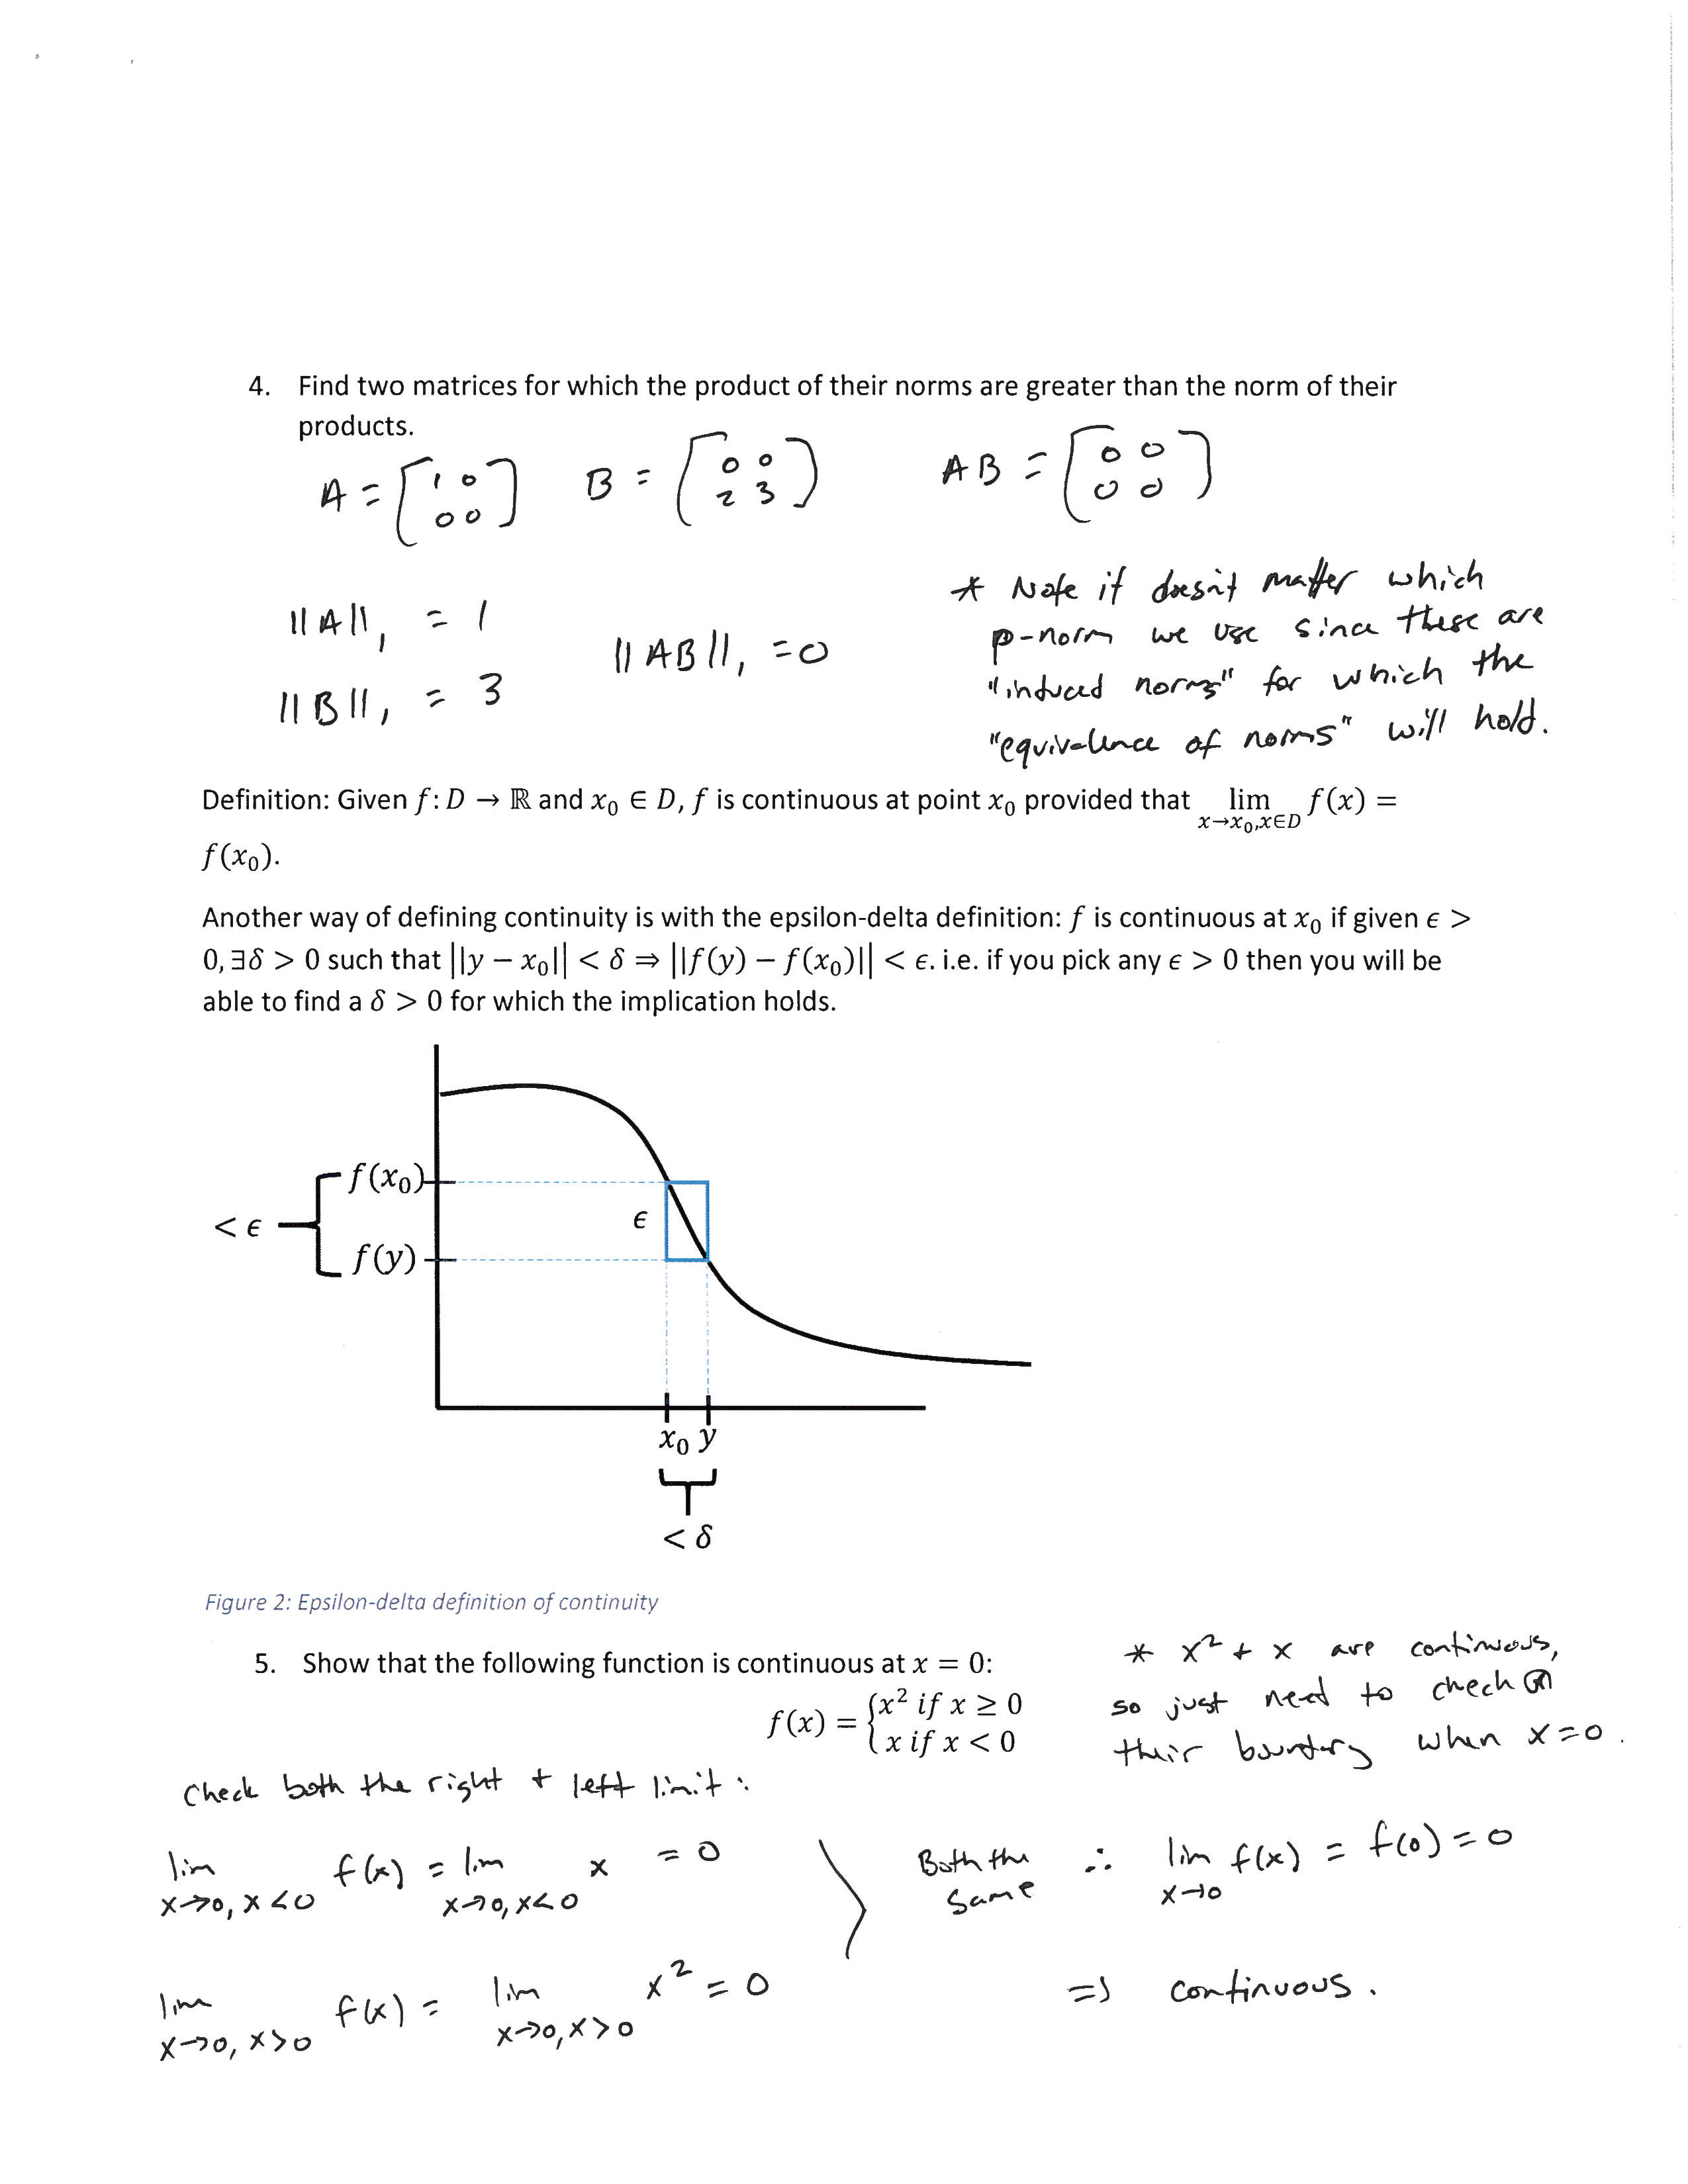 4. Find two matrices for which the product of their norms are greater than the norm of their
products.
A = [1 0
0 0] B = [0 0
2 3] AB = [0 0
0 0]
* Note it doesn't matter which
p-norm we use since these are
"induced norms" for which the
"equivalence of norms" will hold.
||A||₁ = 1
||B||₁ = 3
||AB||₁ = 0
Definition: Given f: D → ℝ and x₀ ∈ D, f is continuous at point x₀ provided that lim f(x) =
x→x₀,x∈D
f(x₀).
Another way of defining continuity is with the epsilon-delta definition: f is continuous at x₀ if given ϵ >
0, ∃δ > 0 such that ||y − x₀|| < δ ⇒ ||f(y) − f(x₀)|| < ϵ. i.e. if you pick any ϵ > 0 then you will be
able to find a δ > 0 for which the implication holds.
f(x₀)
< ϵ
ϵ
f(y)
x₀ y
< δ
Figure 2: Epsilon-delta definition of continuity
5. Show that the following function is continuous at x = 0:
f(x) = {x² if x ≥ 0
x if x < 0
* x² + x are continuous,
so just need to check @
their boundary when x=0.
Check both the right + left limit:
lim f(x) = lim x = 0
x→0, x<0 x→0, x<0
lim f(x) = lim x² = 0
x→0, x>0 x→0, x>0
Both the
same
∴ lim f(x) = f(0) = 0
x→0
⇒ continuous.